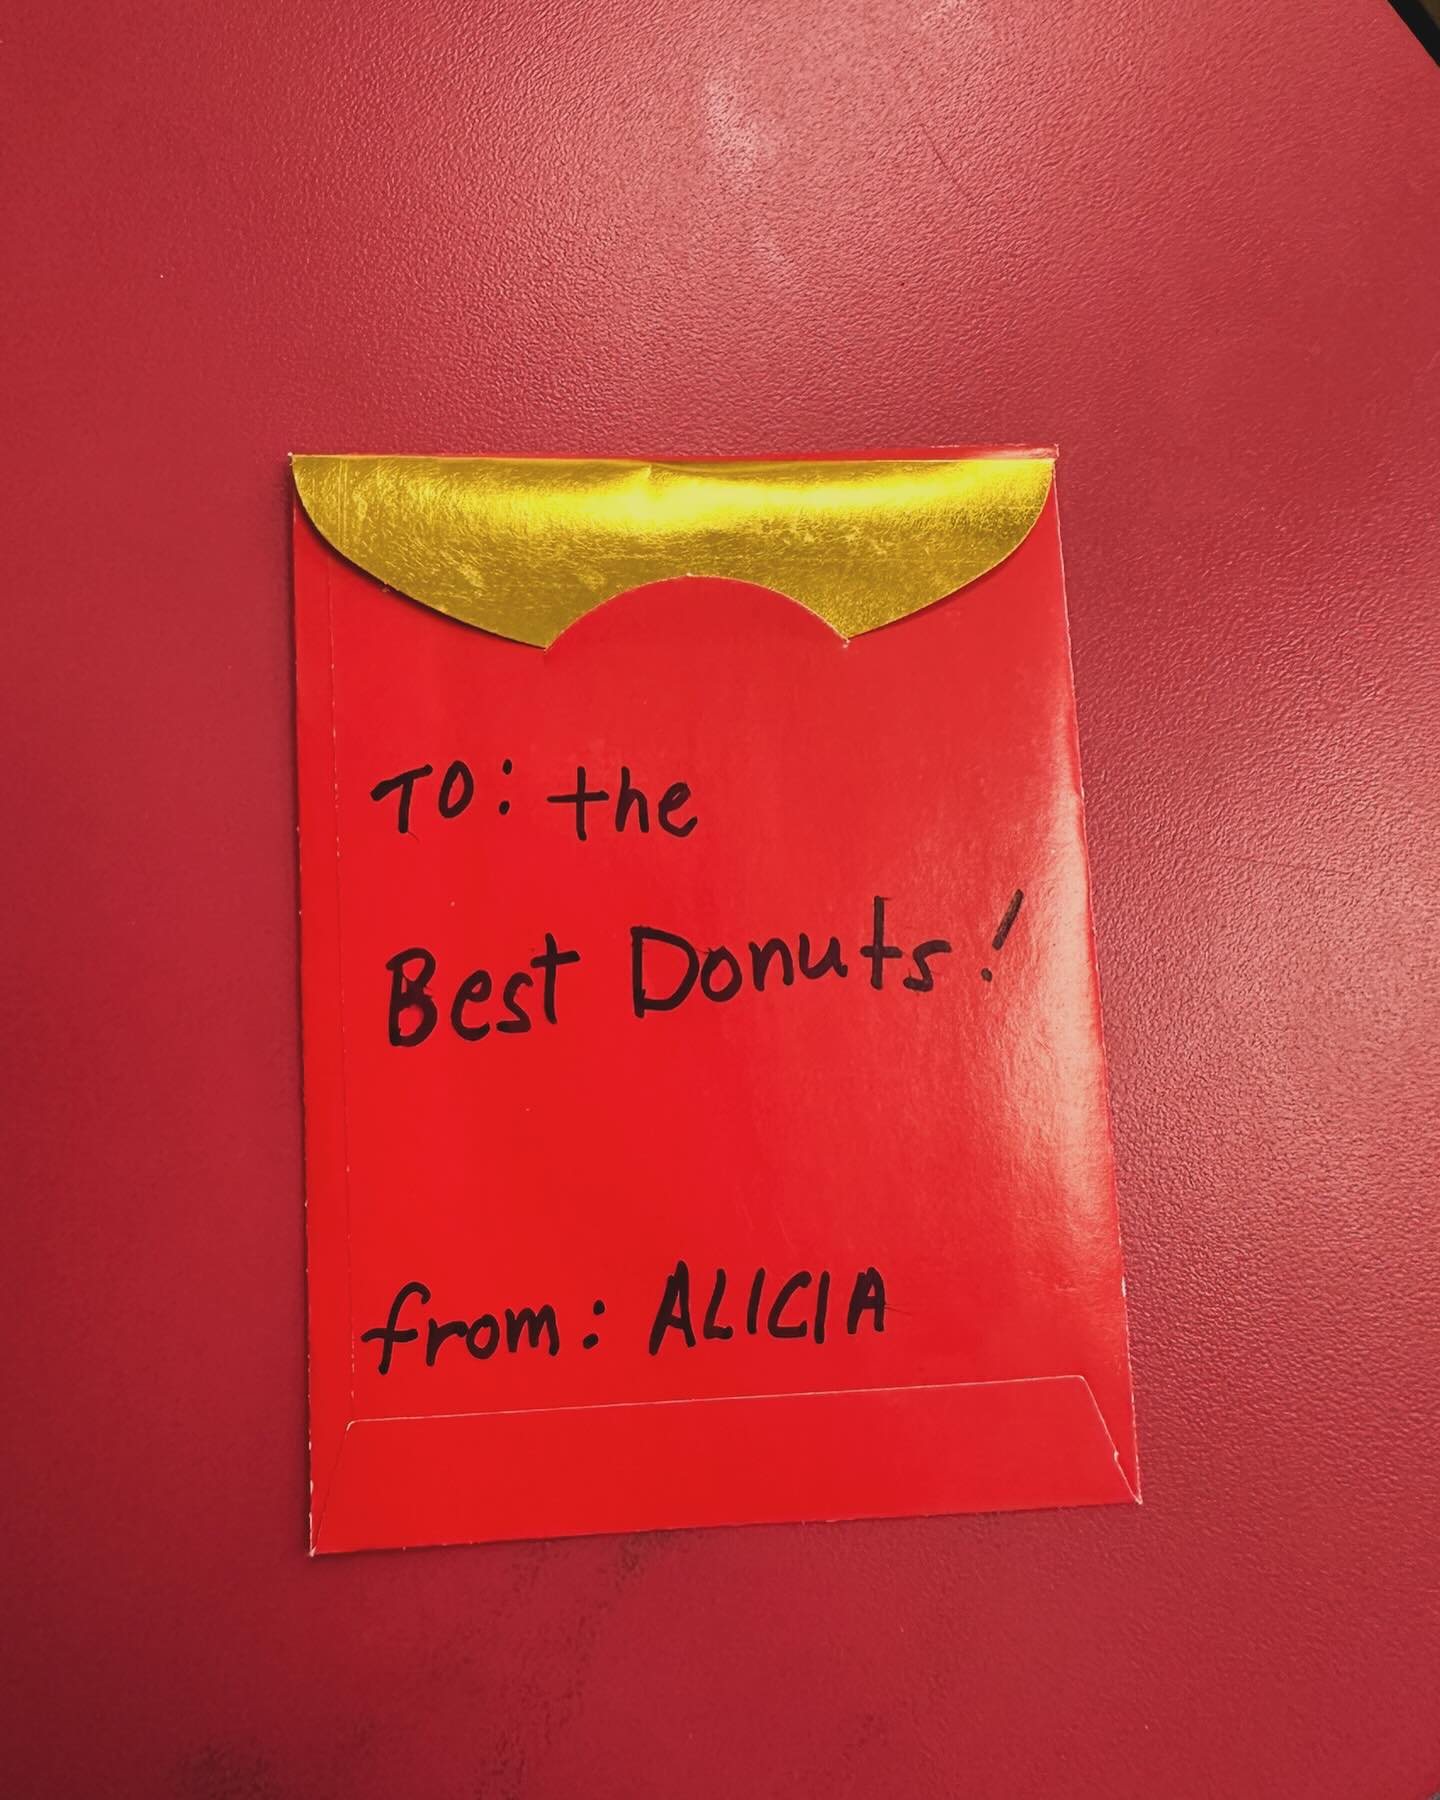 TO: the
Best Donuts!
from: ALICIA